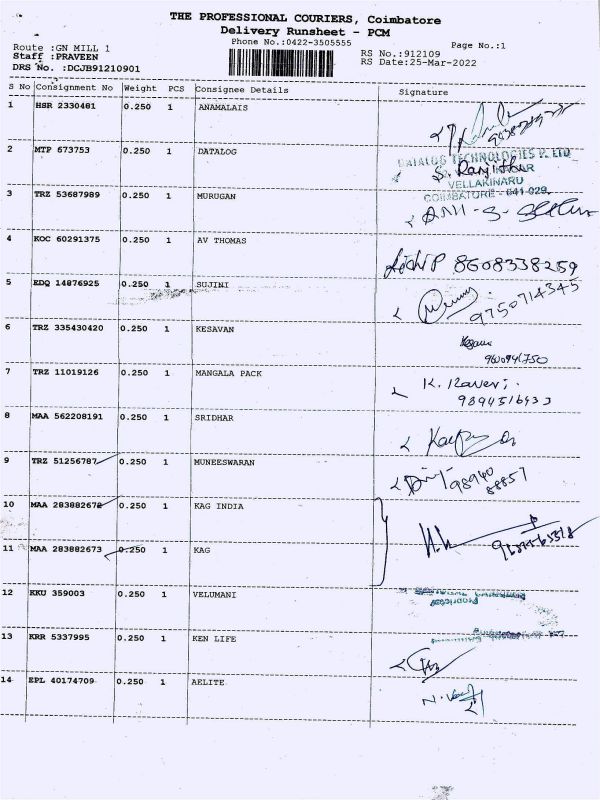 THE PROFESSIONAL COURIERS, Coimbatore
Delivery Runsheet - PCM
Phone No.:0422-3505555
Page No.:1
Route :GN MILL 1
Staff :PRAVEEN
DRS No. :DCJB91210901
RS No.:912109
RS Date:25-Mar-2022
S No Consignment No Weight PCS Consignee Details Signature
1 HSR 2330481 0.250 1 ANAMALAIS
2 MTP 673753 0.250 1 DATALOG
DATALOG TECHNOLOGIES P. LTD
S. Ranjitha
VELLAKINARU
COIMBATORE - 641 029
3 TRZ 53687989 0.250 1 MURUGAN
4 KOC 60291375 0.250 1 AV THOMAS
8608338259
5 EDQ 14876925 0.250 1 SUJINI
9750714345
6 TRZ 335430420 0.250 1 KESAVAN
7 TRZ 11019126 0.250 1 MANGALA PACK
K. Kaveri
9894516933
8 MAA 562208191 0.250 1 SRIDHAR
9 TRZ 51256787 0.250 1 MUNEESWARAN
98940
88857
10 MAA 283882672 0.250 1 KAG INDIA
11 MAA 283882673 0.250 1 KAG
12 KKU 359003 0.250 1 VELUMANI
Proprietor
13 KRR 5337995 0.250 1 KEN LIFE
14 EPL 40174709 0.250 1 AELITE